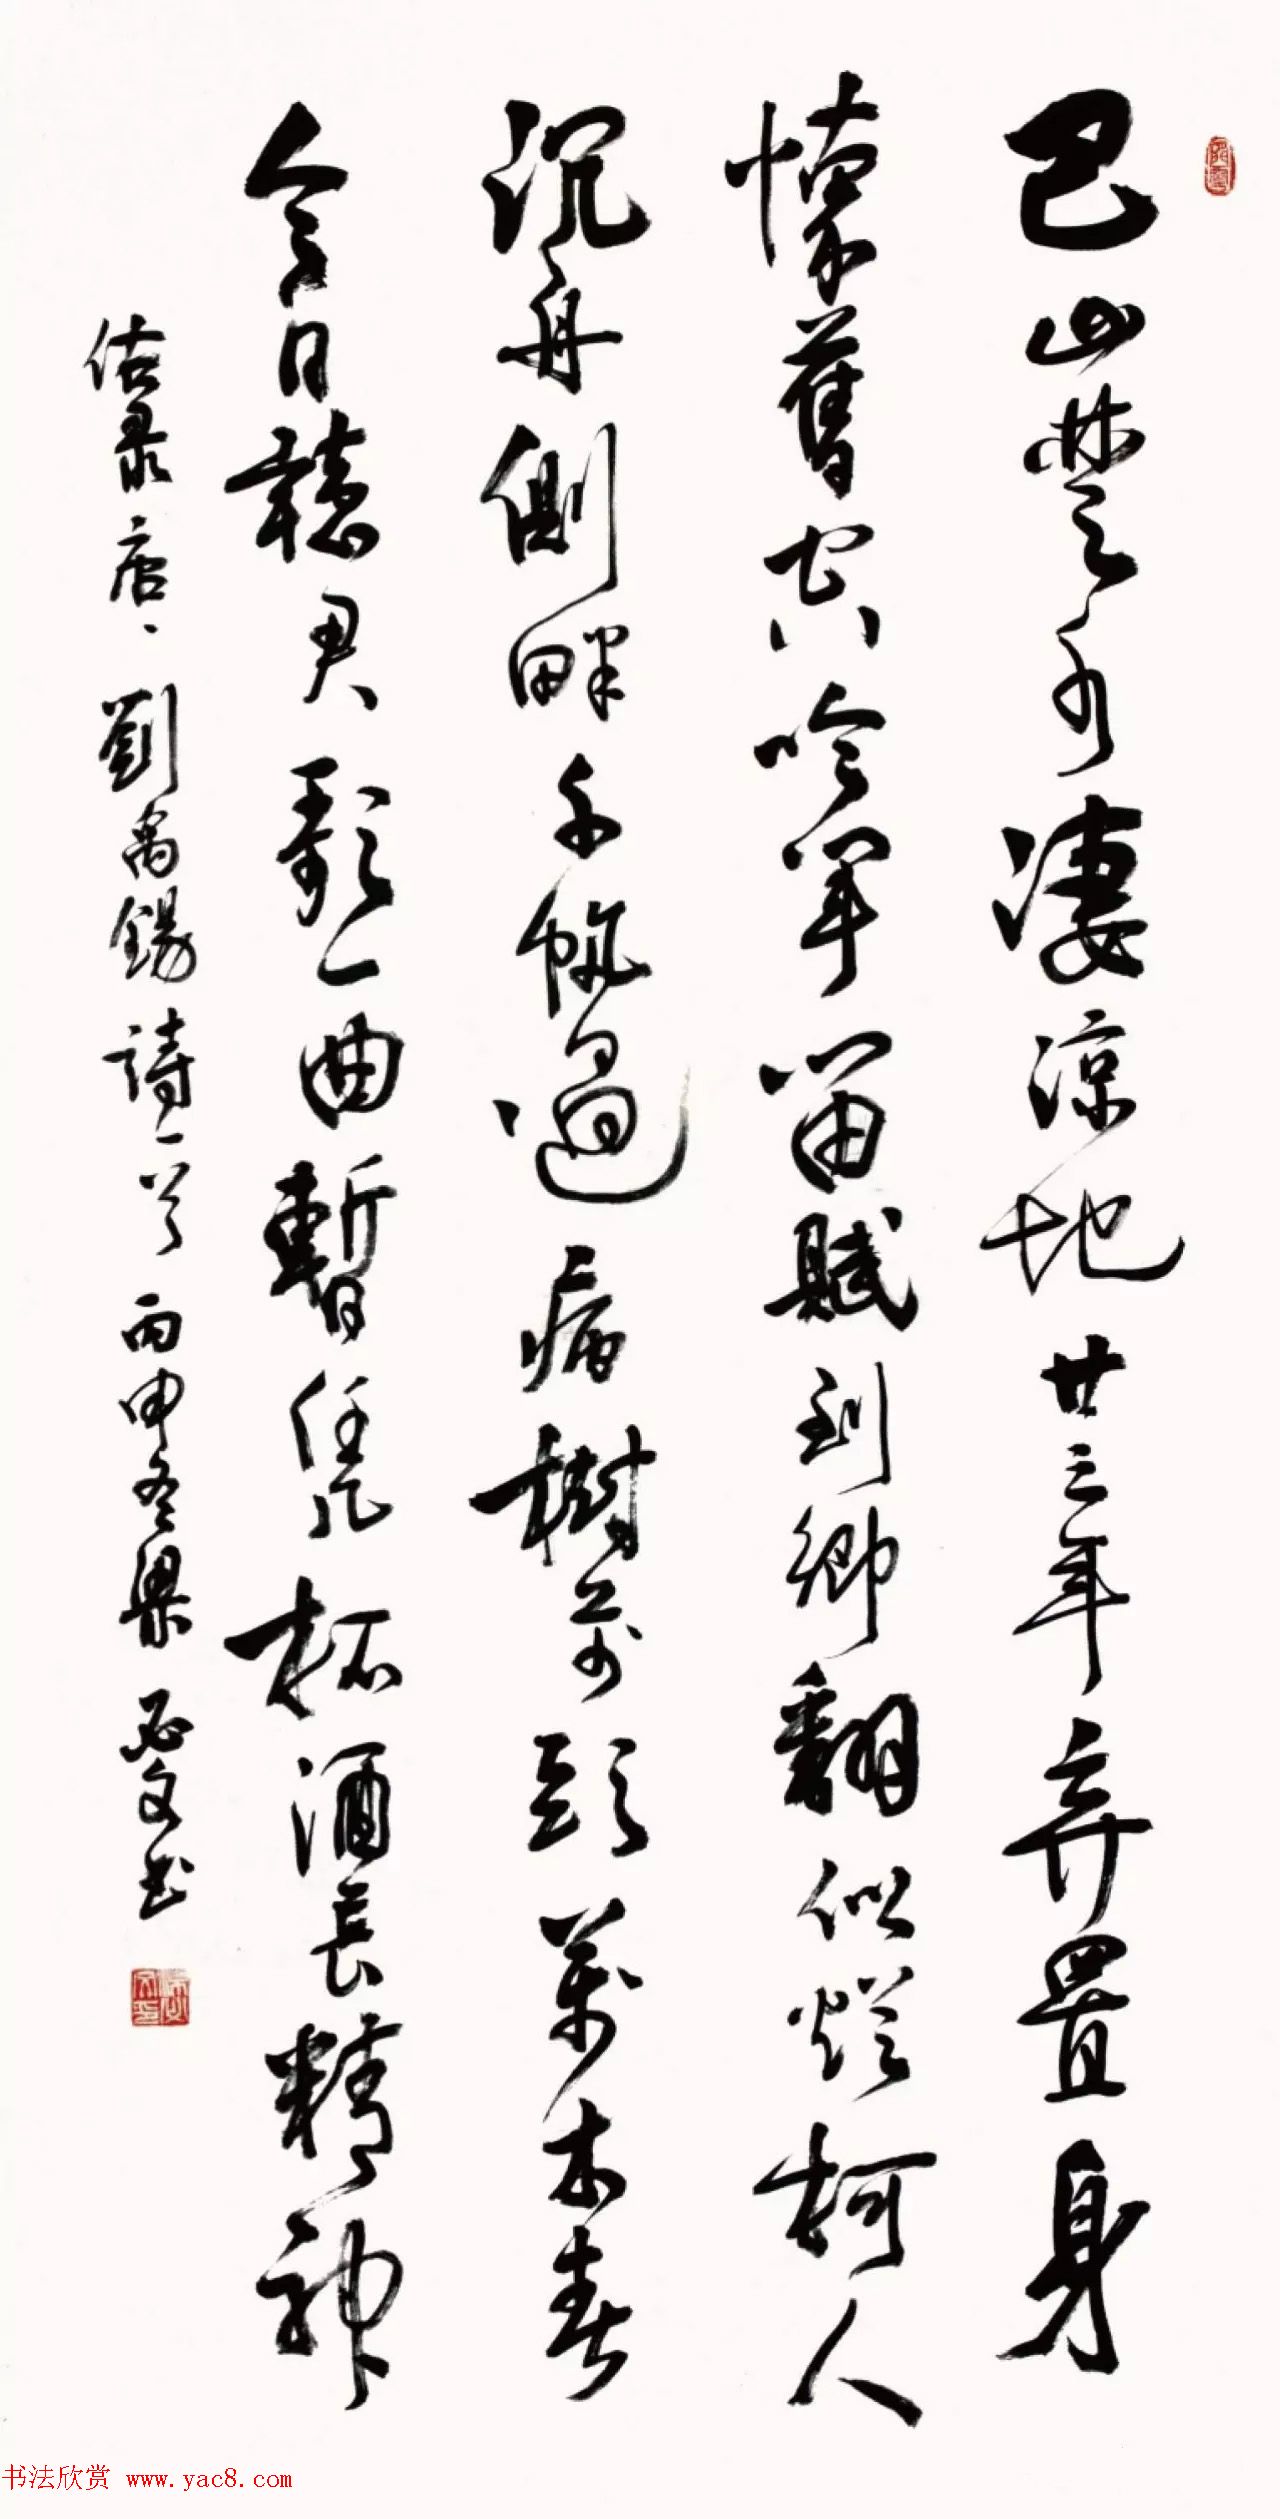 巴山楚水凄涼地廿三年弃置身
懷舊空吟聞笛賦到鄉翻似爛柯人
沉舟側畔千帆過病樹前頭萬木春
今日聽君歌一曲暫凭杯酒長精神
录唐人劉禹錫詩一首 丙申冬梁文书
书法欣赏 www.yac8.com